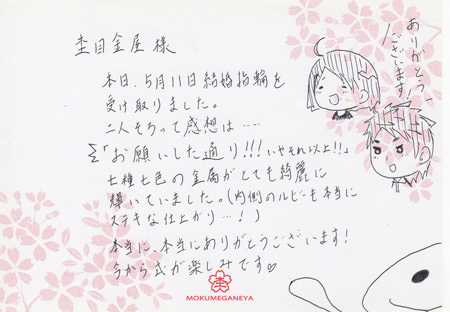 杢目金屋 様
本日、5月11日結婚指輪を
受け取りました。
二人そろって感想は‥‥
「お願いした通り!!! いやそれ以上!!」
七種七色の金属がとても綺麗に
輝いていました。(内側のルビーも本当に
ステキな仕上がり…!)
本当に、本当にありがとうございます!
今から式が楽しみです♡
ありがとう
ございます!
MOKUMEGANEYA